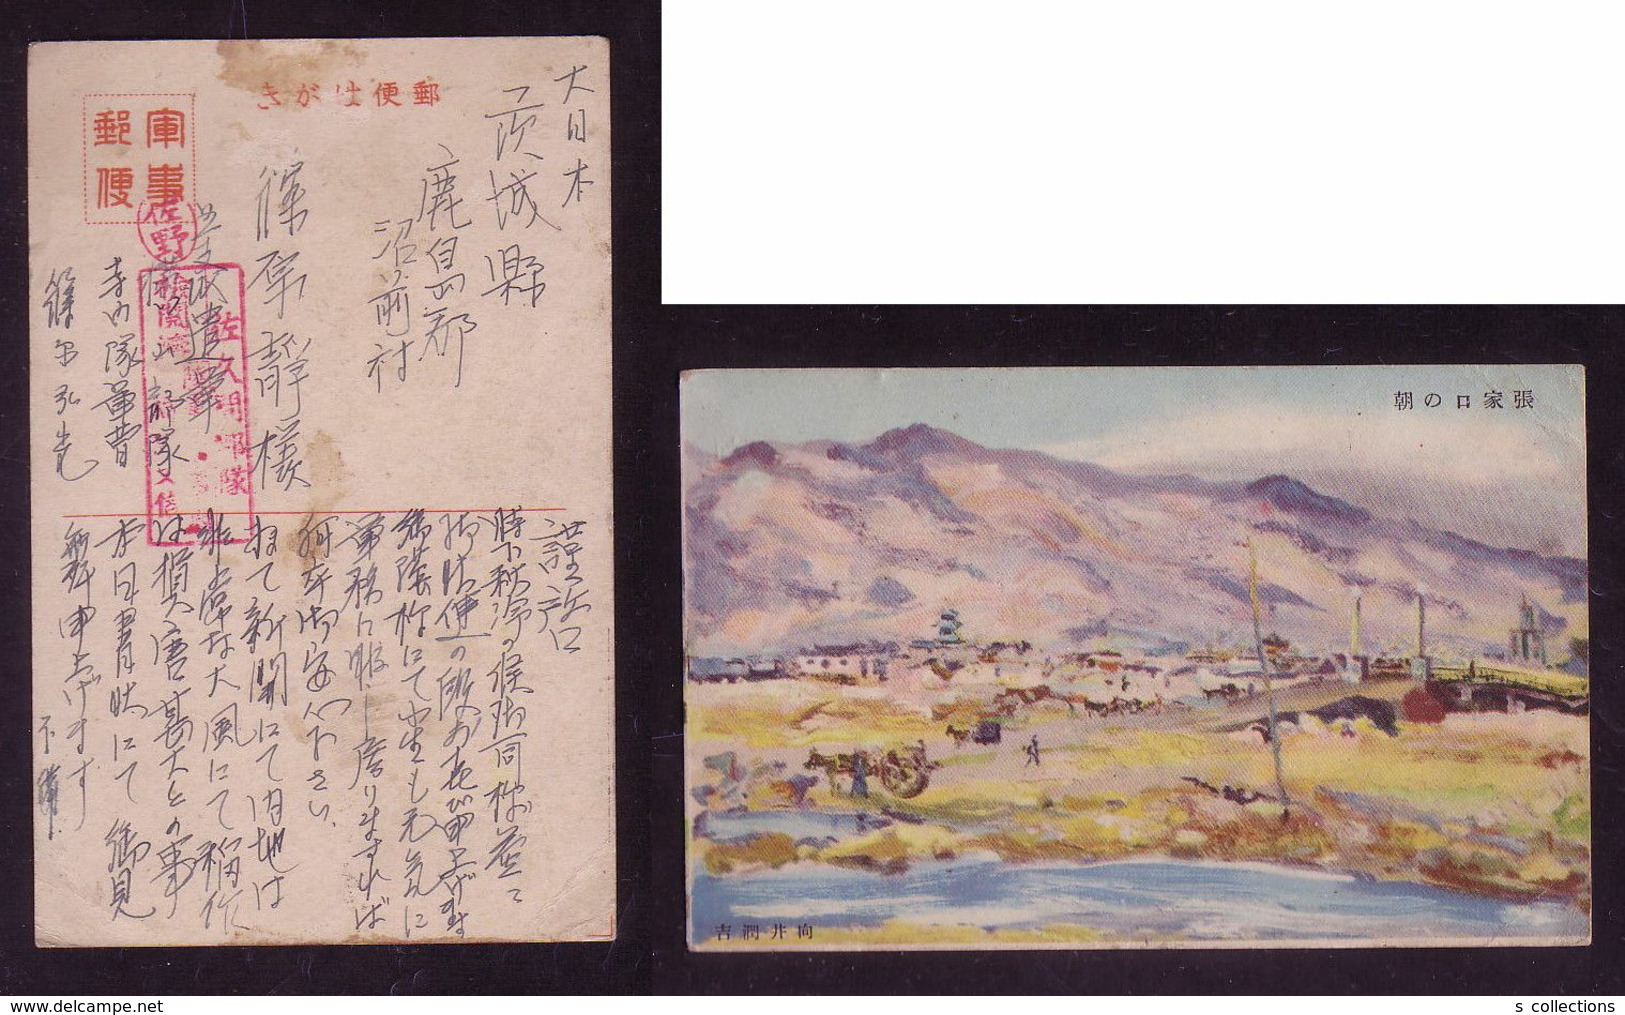 郵便はがき
軍事
郵便
大日本
茨城縣
鹿島郡
沼前村
篠原靜様
佐野
佐久間部隊
検閲済
寺内隊
謹啓
時下秋冷の候御一同様益々
御壮健の段お慶び申上げます
御蔭様にて小生も元気に
軍務に服し居りますれば
何卒御安心下さい
新聞にて内地は
非常な大風にて稲作
は損害甚大との事
本日書状にて御見
舞申上げます
不備
張家口の朝
向井潤吉
s collections